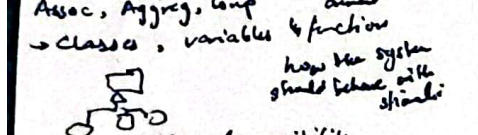 Assoc, Aggreg, Comp
→ Classes, variables & function
how the system
should behave with
stimuli